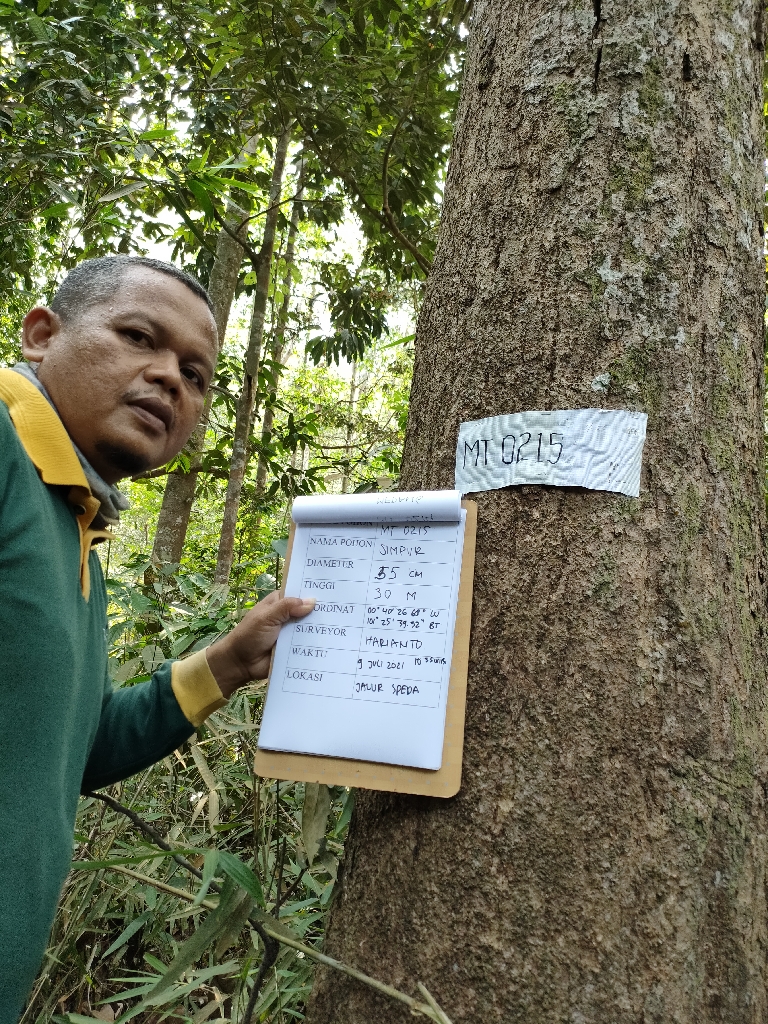 MT 0215
MT 0215
NAMA POHON SIMPUR
DIAMETER 55 CM
TINGGI 30 M
ORDINAT 00° 40' 26.69" LU
101° 25' 39.92" BT
SURVEYOR HARIANTO
WAKTU 9 JULI 2021 10.33 WIB
LOKASI JALUR SPEDA